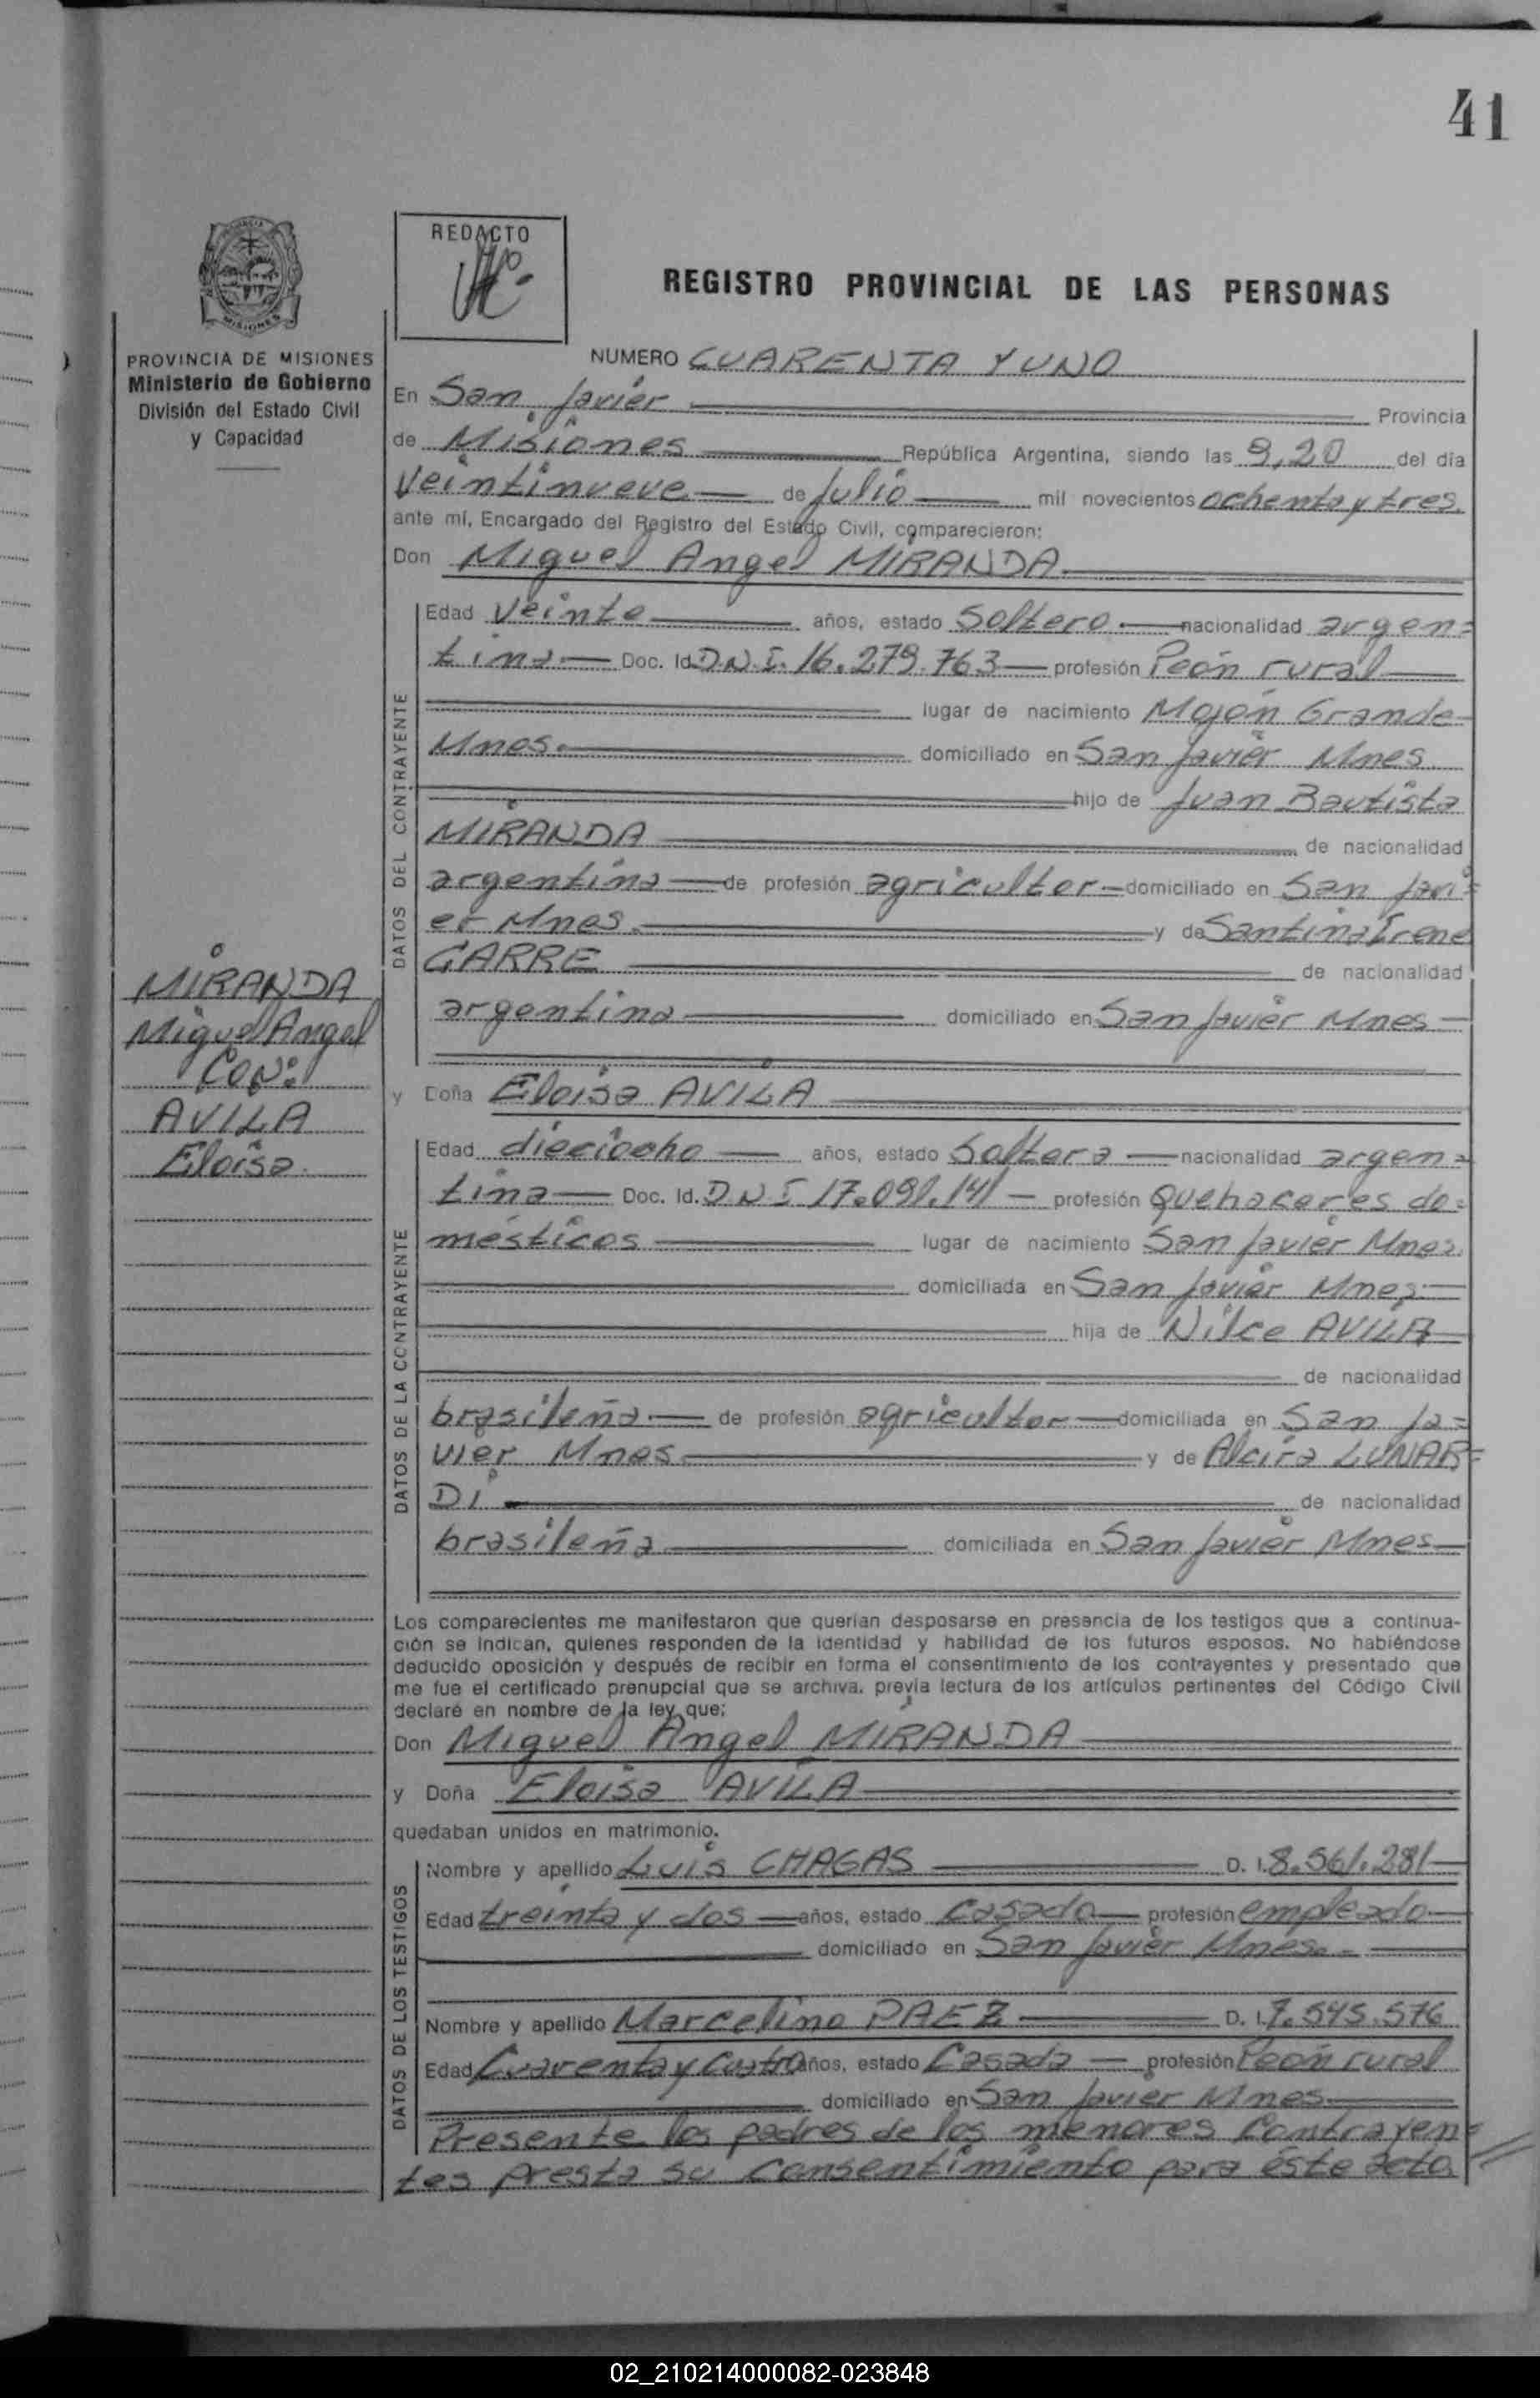 41
REDACTO
REGISTRO PROVINCIAL DE LAS PERSONAS
PROVINCIA DE MISIONES
Ministerio de Gobierno
División del Estado Civil
y Capacidad
NUMERO CUARENTA Y UNO
En San Javier Provincia
de Misiones República Argentina, siendo las 9,20 del día
veintinueve de Julio mil novecientos ochenta y tres
ante mí, Encargado del Registro del Estado Civil, comparecieron:
Don Miguel Angel MIRANDA
DATOS DEL CONTRAYENTE
Edad veinte años, estado Soltero nacionalidad argen=
tina Doc. Id. D.N.I. 16.279.763 profesión Peón rural
lugar de nacimiento Mojón Grande
Mnes. domiciliado en San Javier Mnes
hijo de Juan Bautista
MIRANDA de nacionalidad
argentina de profesión agricultor domiciliado en San Javi=
er Mnes. y de Santina Irene
GARRE de nacionalidad
argentina domiciliado en San Javier Mnes
MIRANDA
Miguel Angel
CON:
AVILA
Eloisa
y Doña Eloisa AVILA
DATOS DE LA CONTRAYENTE
Edad dieciocho años, estado Soltera nacionalidad argen=
tina Doc. Id. D N I 17.091.141 profesión Quehaceres do=
mésticos lugar de nacimiento San Javier Mnes.
domiciliada en San Javier Mnes
hija de Nilce AVILA
de nacionalidad
brasileña de profesión agricultor domiciliada en San Ja=
vier Mnes y de Alcira LUNAR=
DI de nacionalidad
brasileña domiciliada en San Javier Mnes
Los comparecientes me manifestaron que querían desposarse en presencia de los testigos que a continua-
ción se indican, quienes responden de la identidad y habilidad de los futuros esposos. No habiéndose
deducido oposición y después de recibir en forma el consentimiento de los contrayentes y presentado que
me fue el certificado prenupcial que se archiva, previa lectura de los artículos pertinentes del Código Civil
declaré en nombre de la ley que:
Don Miguel Angel MIRANDA
y Doña Eloisa AVILA
quedaban unidos en matrimonio.
DATOS DE LOS TESTIGOS
Nombre y apellido Luis CHAGAS D. I. 8.561.281
Edad treinta y dos años, estado Casado profesión empleado
domiciliado en San Javier Mnes.
Nombre y apellido Marcelino PAEZ D. I. 7.545.576
Edad Cuarenta y Cuatro años, estado Casado profesión Peón rural
domiciliado en San Javier Mnes
Presente los padres de los menores Contrayen=
tes presta su consentimiento para éste acto.
02_210214000082-023848